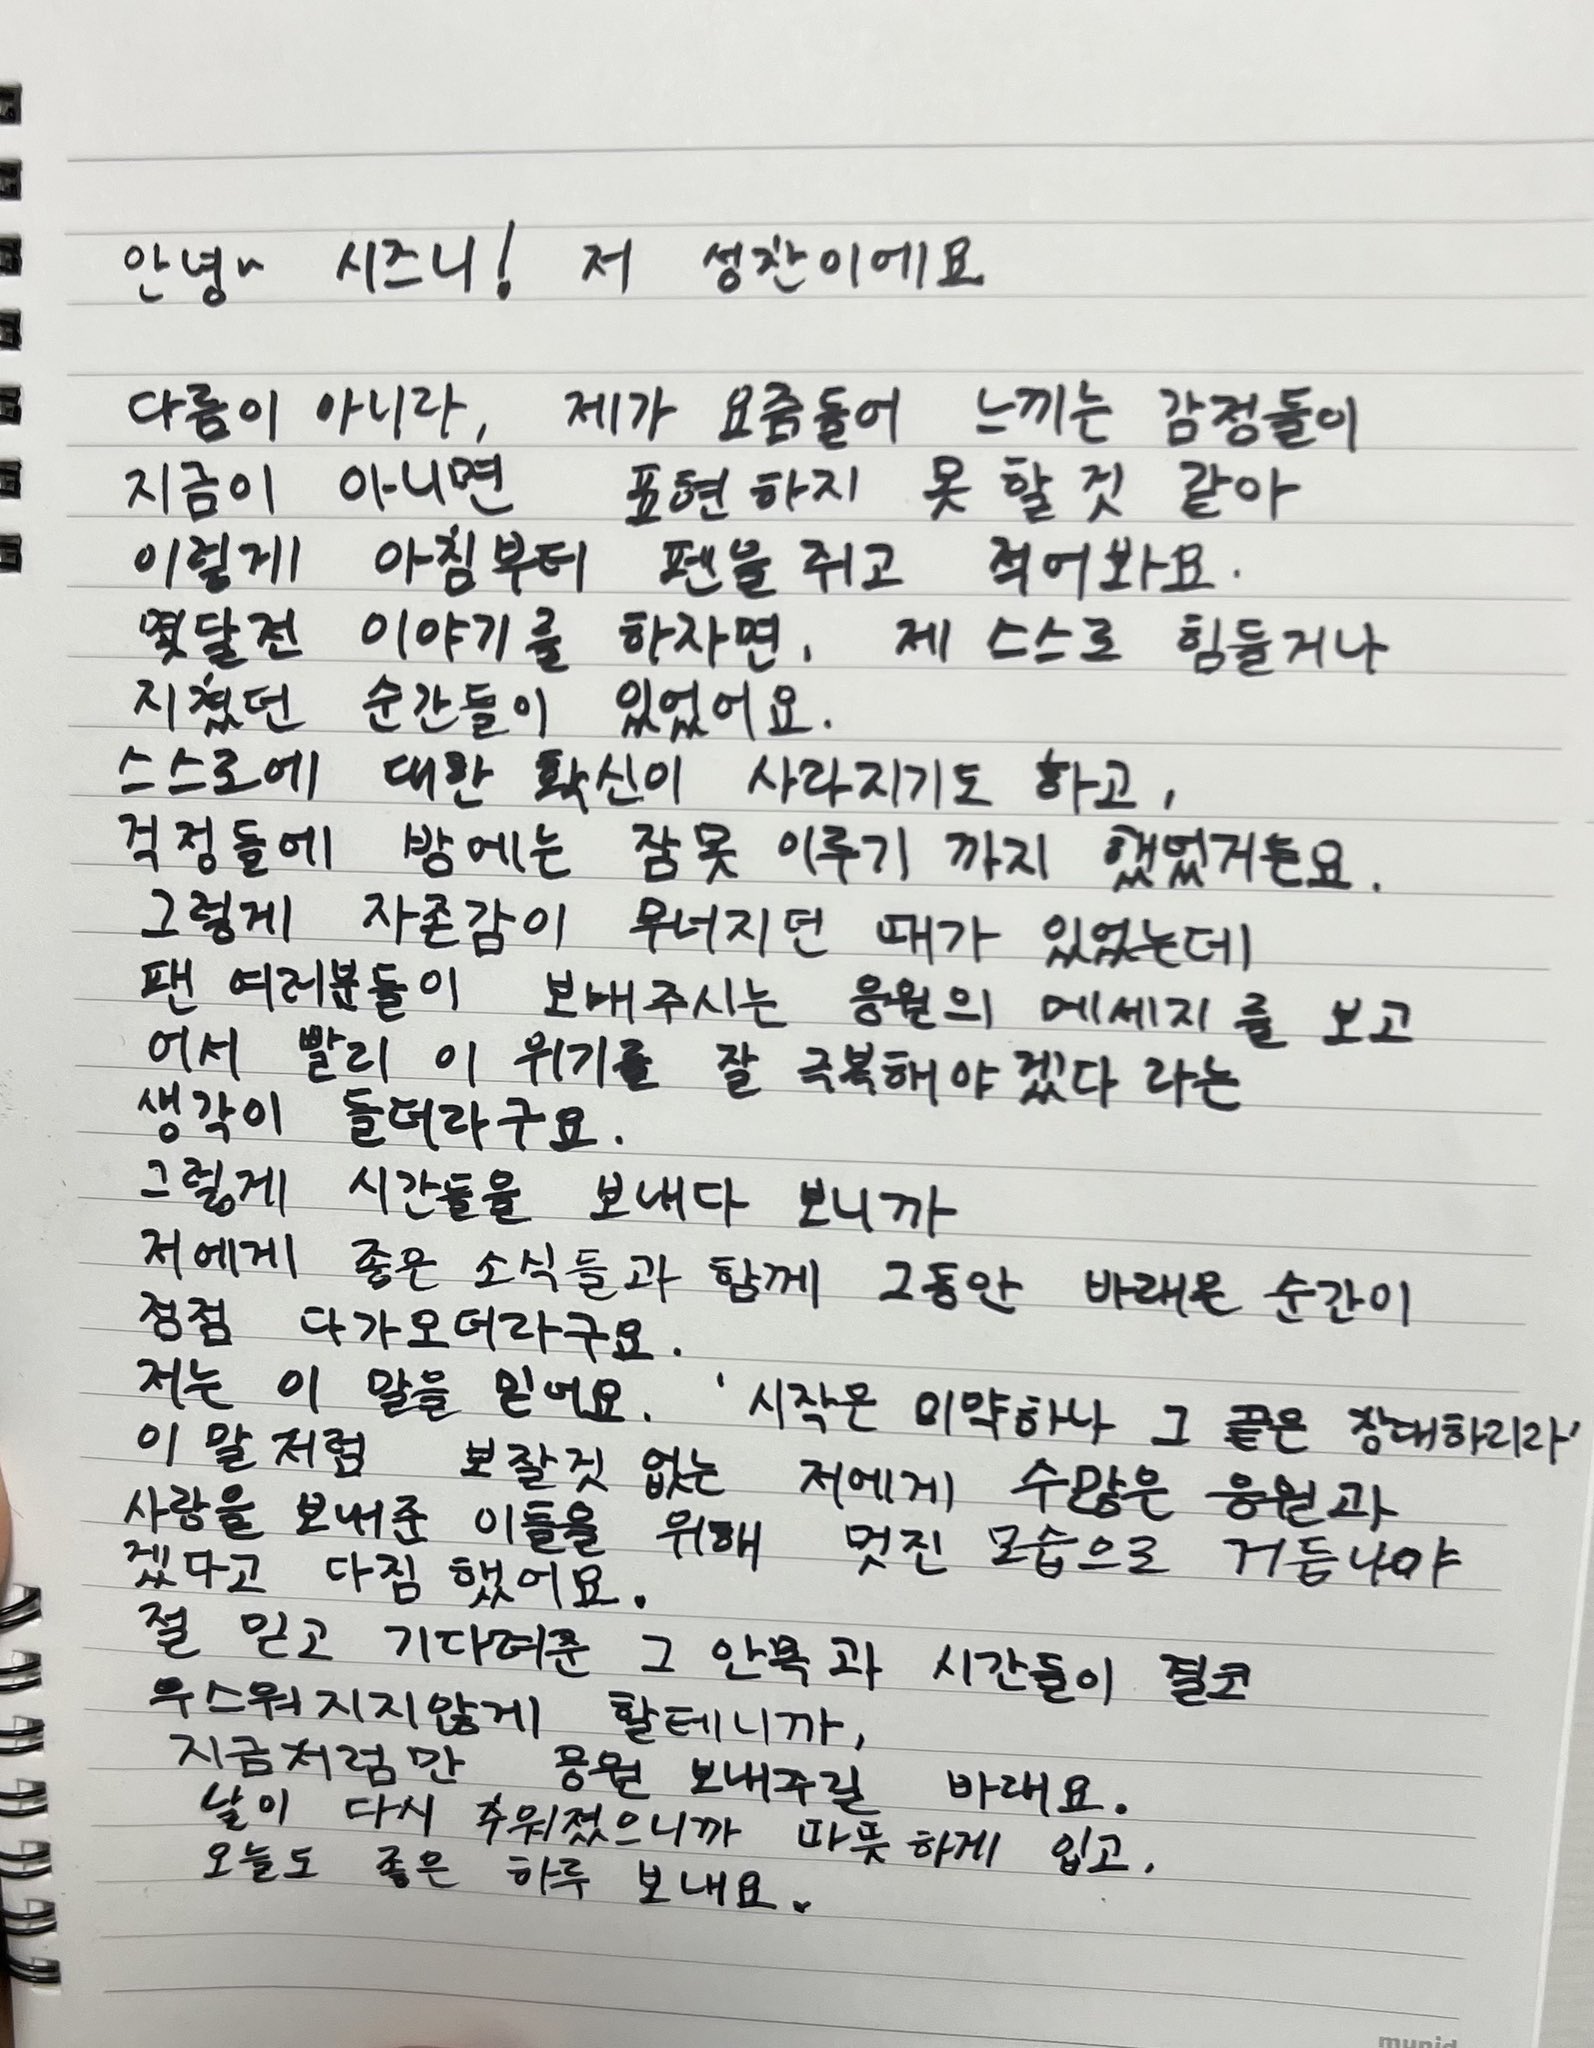 안녕~ 시즈니! 저 성찬이에요
다름이 아니라, 제가 요즘들어 느끼는 감정들이
지금이 아니면 표현하지 못할것 같아
이렇게 아침부터 펜을 쥐고 적어봐요.
몇달전 이야기를 하자면, 제 스스로 힘들거나
지쳤던 순간들이 있었어요.
스스로에 대한 확신이 사라지기도 하고,
걱정들에 밤에는 잠못 이루기 까지 했었거든요.
그렇게 자존감이 무너지던 때가 있었는데
팬 여러분들이 보내주시는 응원의 메세지를 보고
어서 빨리 이 위기를 잘 극복해야겠다 라는
생각이 들더라구요.
그렇게 시간들을 보내다 보니까
저에게 좋은 소식들과 함께 그동안 바래온 순간이
점점 다가오더라구요.
저는 이 말을 믿어요. '시작은 미약하나 그 끝은 장대하리라'
이 말처럼 보잘것 없는 저에게 수많은 응원과
사랑을 보내준 이들을 위해 멋진 모습으로 거듭나야
겠다고 다짐했어요.
절 믿고 기다려준 그 안목과 시간들이 결코
우스워지지않게 할테니까,
지금처럼만 응원 보내주길 바래요.
날이 다시 추워졌으니까 따뜻하게 입고,
오늘도 좋은 하루 보내요.